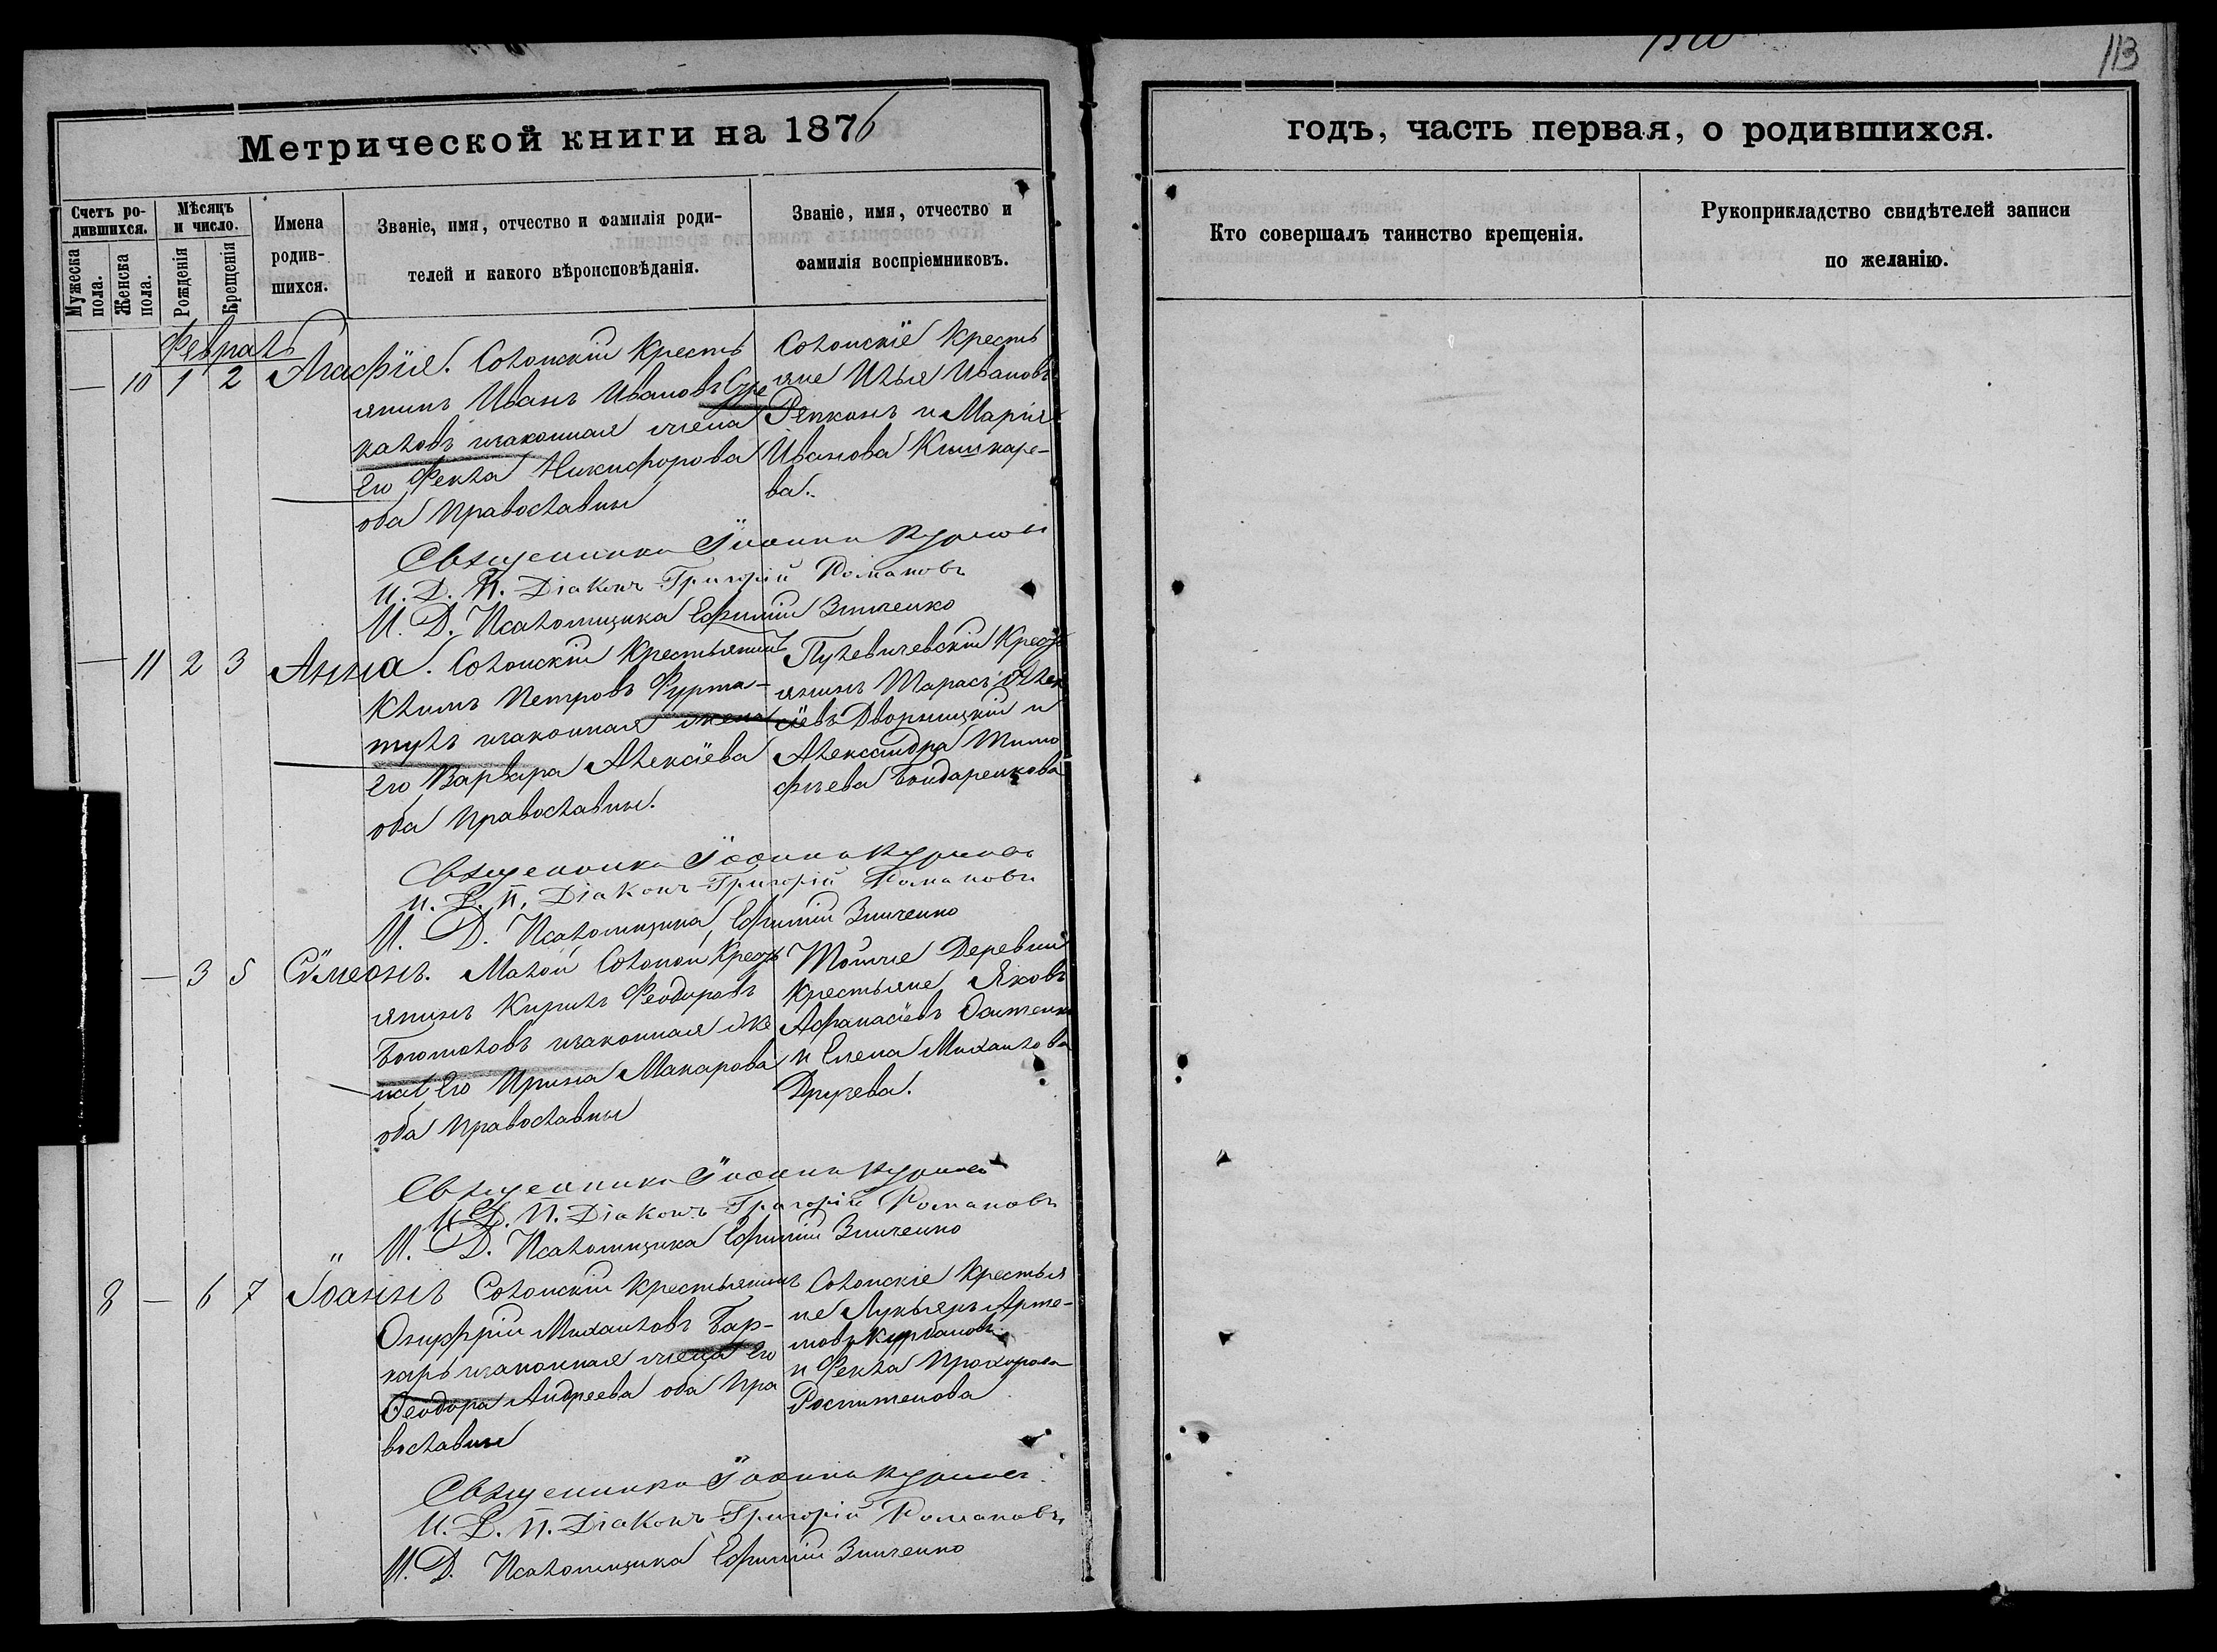 113
Метрической книги на 1876
годъ, часть первая, о родившихся.
Счетъ ро-
дившихся.
Мужеска
пола.
Женска
пола.
Мѣсяцъ
и число.
Рожденія
Крещенія
Имена
родив-
шихся.
Званіе, имя, отчество и фамилія роди-
телей и какого вѣроисповѣданія.
Званіе, имя, отчество и
фамилія воспріемниковъ.
Кто совершалъ таинство крещенія.
Рукоприкладство свидѣтелей записи
по желанію.
Февраль
— 10 1 2 Агафїя.
Солонскій Кресть
янинъ Иванъ Ивановъ
законная жена
Его Фекла Никифорова
оба Православны
Солонскїе Кресть
яне Илья Ивановъ
Репконъ и Марія
Иванова Кышкаре-
ва.
Священникъ Іоаннъ
И. Д. П. Діаконъ Григорій Романовъ
И. Д. Псаломщика Ефимій Зинченко
— 11 2 3 Анна.
Солонскій Крестьянинъ
Климъ Петровъ Фурта-
тулъ законная жена
Его Варвара Алексїева
оба Православны.
Крест
янинъ Тарасъ Алек
сїевъ Дворницкій и
Александра Тимо
фѣева Бондаренкова
Священникъ Іоаннъ
И. Д. П. Діаконъ Григорій Романовъ
И. Д. Псаломщика Ефимій Зинченко
— 3 5 Сѵмеонъ.
Малой Солоной Крест
янинъ Кирилъ Феодоровъ
Богомоловъ законная же
на Его Ирина Макарова
оба Православны
Тойже Деревни
Крестьяне Яковъ
Афанасїевъ
и Елена Михаилова
Священникъ Іоаннъ
И. Д. П. Діаконъ Григорій Романовъ
И. Д. Псаломщика Ефимій Зинченко
8 — 6 7 Іоаннъ
Солонскій Крестьянинъ
Онуфрій Михаиловъ Бар-
карь законная жена Его
Феодора Андреева оба Пра
вославны
Солонскіе Крестья
не Лукьянъ Арте-
мовъ Курбановъ
и Фекла Прохорова
Священникъ Іоаннъ
И. Д. П. Діаконъ Григорій Романовъ
И. Д. Псаломщика Ефимій Зинченко